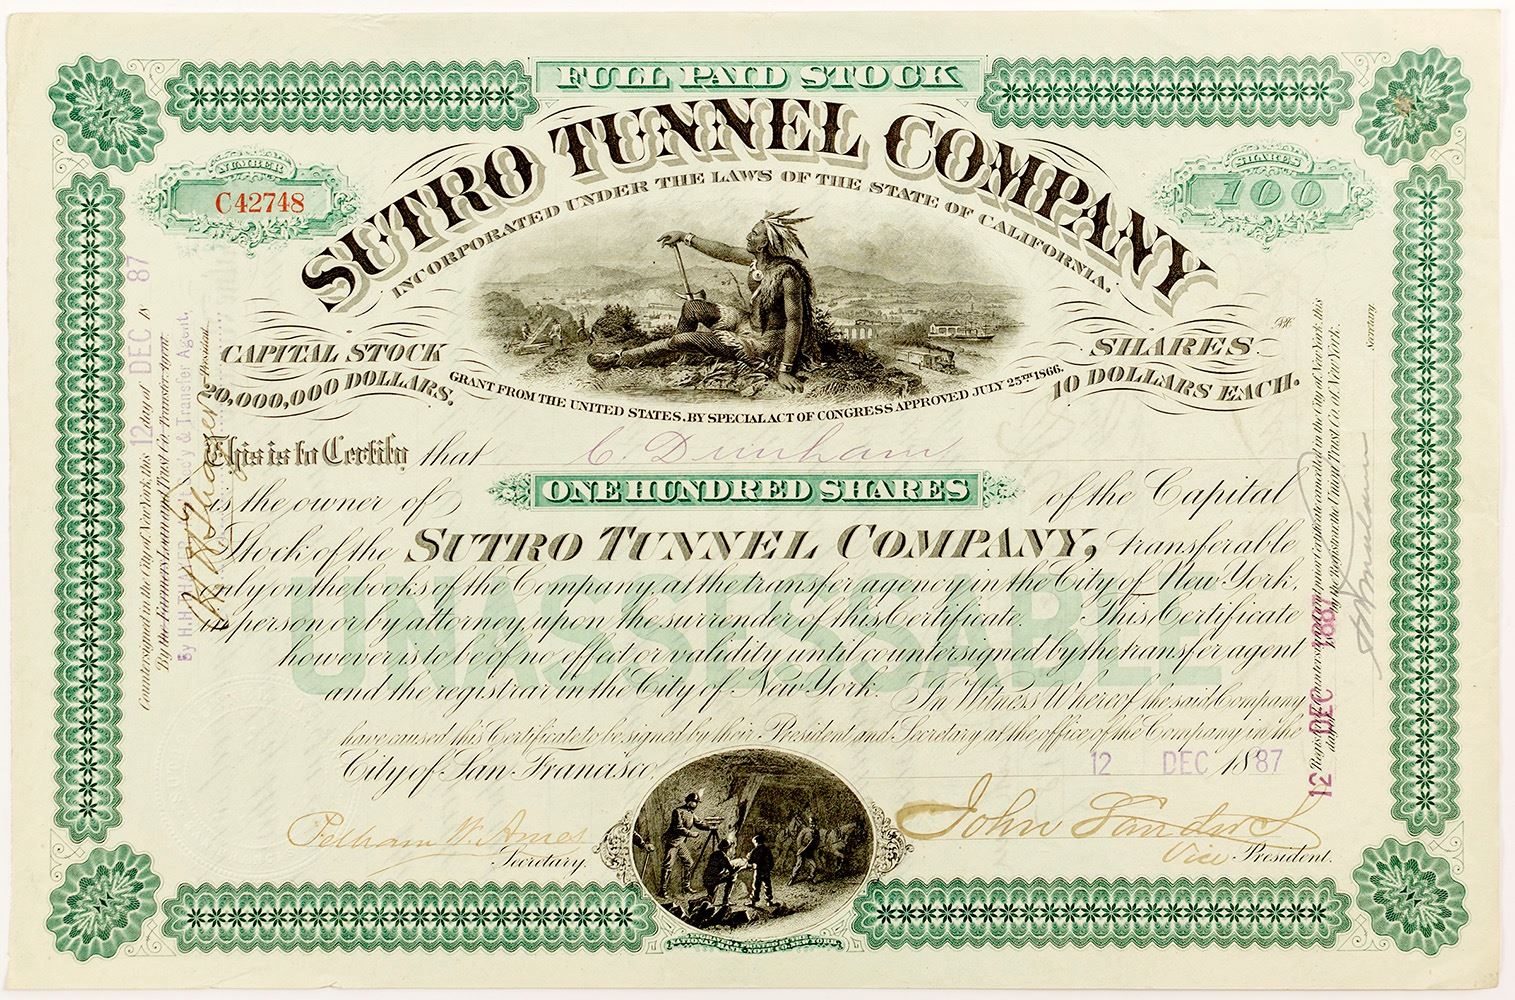 FULL PAID STOCK
NUMBER
C42748
SHARES
100
SUTRO TUNNEL COMPANY
INCORPORATED UNDER THE LAWS OF THE STATE OF CALIFORNIA.
CAPITAL STOCK
20,000,000 DOLLARS.
SHARES
10 DOLLARS EACH.
GRANT FROM THE UNITED STATES, BY SPECIAL ACT OF CONGRESS APPROVED JULY 25TH 1866.
This is to Certify that C Dunham
is the owner of ONE HUNDRED SHARES of the Capital
Stock of the SUTRO TUNNEL COMPANY, transferable
only on the books of the Company, at the transfer agency in the City of New York,
in person or by attorney, upon the surrender of this Certificate. This Certificate
however is to be of no effect or validity until countersigned by the transfer agent
and the registrar in the City of New York. In Witness Whereof the said Company
have caused this Certificate to be signed by their President and Secretary at the office of the Company in the
City of San Francisco, 12 DEC 1887
UNASSESSABLE
Pelham W. Ames
Secretary.
John Landers
Vice President.
Countersigned in the City of New York this 12 day of DEC 1887
By the Farmers Loan and Trust Co. Transfer Agent.
Transfer Agent.
President
12 DEC 1887
Secretary